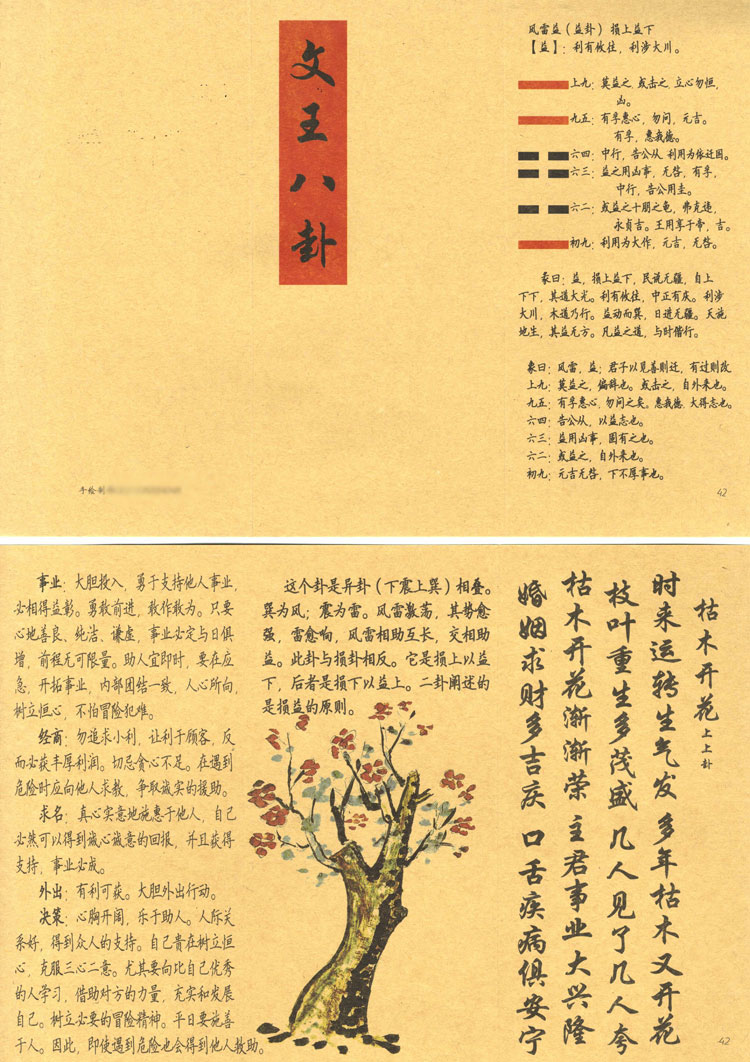 文王八卦
风雷益（益卦）损上益下
【益】：利有攸往，利涉大川。
上九：莫益之，或击之，立心勿恒，
凶。
九五：有孚惠心，勿问，元吉。
有孚，惠我德。
六四：中行，告公从 利用为依迁国。
六三：益之用凶事，无咎，有孚，
中行，告公用圭。
六二：或益之十朋之龟，弗克违，
永贞吉。王用享于帝，吉。
初九：利用为大作，元吉，无咎。
彖曰：益，损上益下，民说无疆，自上
下下，其道大光。利有攸往，中正有庆。利涉
大川，木道乃行。益动而巽，日进无疆。天施
地生，其益无方。凡益之道，与时偕行。
象曰：风雷，益；君子以见善则迁，有过则改
上九：莫益之，偏辞也。或击之，自外来也。
九五：有孚惠心，勿问之矣。惠我德，大得志也。
六四：告公从，以益志也。
六三：益用凶事，固有之也。
六二：或益之，自外来也。
初九：元吉无咎，下不厚事也。
手绘制
42
事业：大胆投入，勇于支持他人事业，
必相得益彰。勇敢前进，敢作敢为。只要
心地善良、纯洁、谦虚，事业必定与日俱
增，前程无可限量。助人宜即时，要在应
急，开拓事业，内部团结一致，人心所向，
树立恒心，不怕冒险犯难。
经商：勿追求小利，让利于顾客，反
而必获丰厚利润。切忌贪心不足。在遇到
危险时应向他人求教，争取诚实的援助。
求名：真心实意地施惠于他人，自己
必然可以得到诚心诚意的回报，并且获得
支持，事业必成。
外出：有利可获。大胆外出行动。
决策：心胸开阔，乐于助人。人际关
系好，得到众人的支持。自己贵在树立恒
心，克服三心二意。尤其要向比自己优秀
的人学习，借助对方的力量，充实和发展
自己。树立必要的冒险精神。平日要施善
于人。因此，即使遇到危险也会得到他人救助。
这个卦是异卦（下震上巽）相叠。
巽为风；震为雷。风雷激荡，其势愈
强，雷愈响，风雷相助互长，交相助
益。此卦与损卦相反。它是损上以益
下，后者是损下以益上。二卦阐述的
是损益的原则。
枯木开花上上卦
时来运转生气发 多年枯木又开花
枝叶重生多茂盛 几人见了几人夸
枯木开花渐渐荣 主君事业大兴隆
婚姻求财多吉庆 口舌疾病俱安宁
42